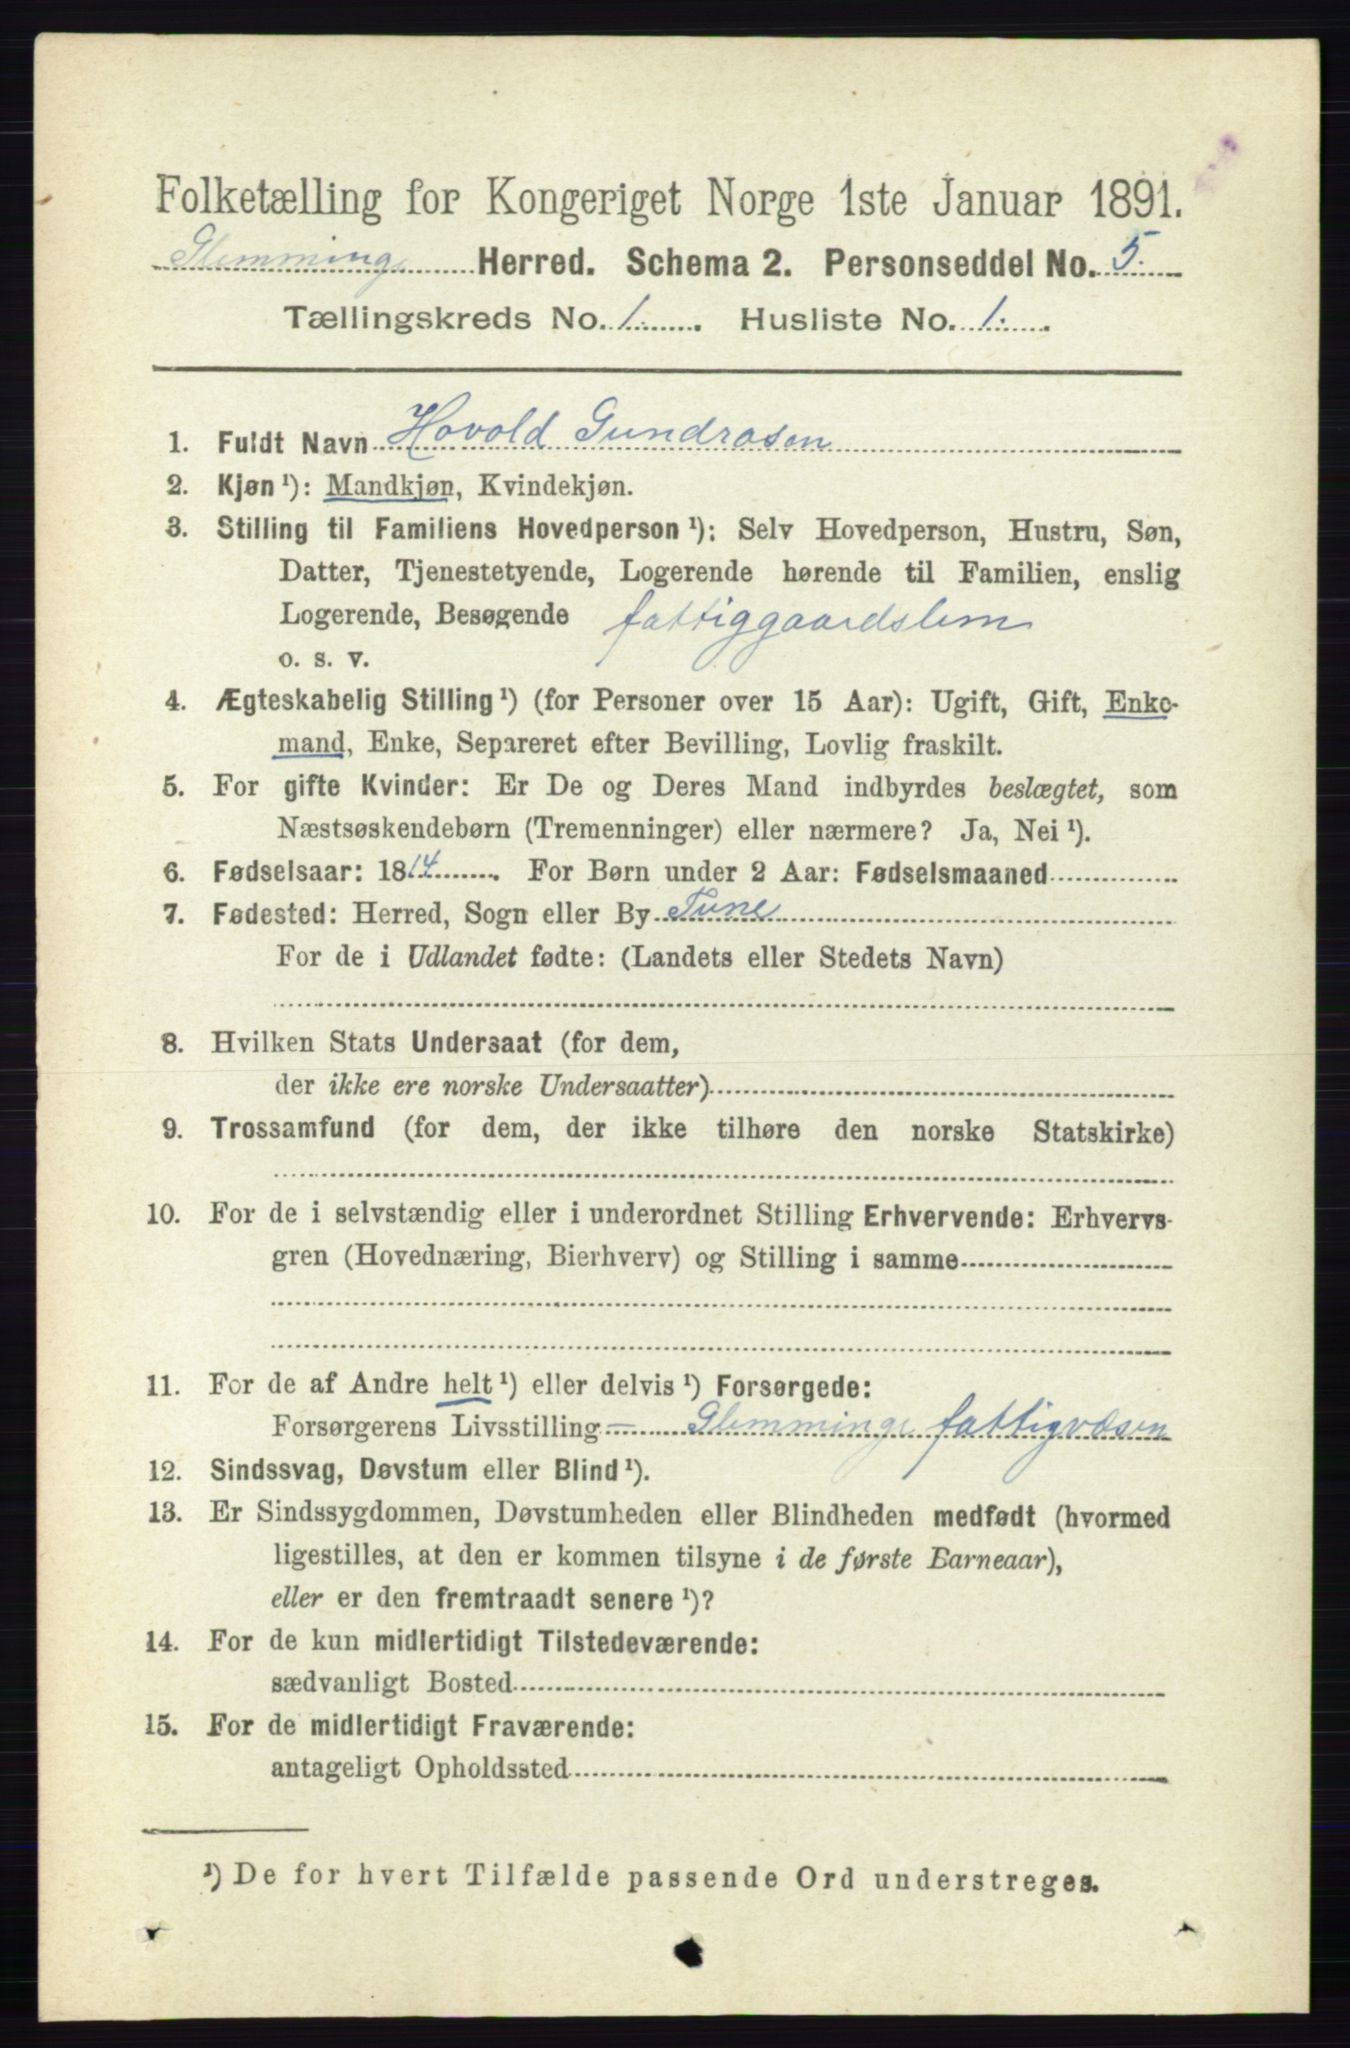 Folketælling for Kongeriget Norge 1ste Januar 1891.
Glemminge Herred. Schema 2. Personseddel No. 5.
Tællingskreds No. 1. Husliste No. 1.
1. Fuldt Navn Hovold Gundrosen
2. Kjøn ¹): Mandkjøn, Kvindekjøn.
3. Stilling til Familiens Hovedperson ¹): Selv Hovedperson, Hustru, Søn,
Datter, Tjenestetyende, Logerende hørende til Familien, enslig
Logerende, Besøgende fattiggaardslem
o. s. v.
4. Ægteskabelig Stilling ¹) (for Personer over 15 Aar): Ugift, Gift, Enke-
mand, Enke, Separeret efter Bevilling, Lovlig fraskilt.
5. For gifte Kvinder: Er De og Deres Mand indbyrdes beslægtet, som
Næstsøskendebørn (Tremenninger) eller nærmere? Ja, Nei ¹).
6. Fødselsaar: 1814. For Børn under 2 Aar: Fødselsmaaned
7. Fødested: Herred, Sogn eller By Tune
For de i Udlandet fødte: (Landets eller Stedets Navn)
8. Hvilken Stats Undersaat (for dem,
der ikke ere norske Undersaatter)
9. Trossamfund (for dem, der ikke tilhøre den norske Statskirke)
10. For de i selvstændig eller i underordnet Stilling Erhvervende: Erhvervs-
gren (Hovednæring, Bierhverv) og Stilling i samme
11. For de af Andre helt ¹) eller delvis ¹) Forsørgede:
Forsørgerens Livsstilling — Glemminge fattigvæsen
12. Sindssvag, Døvstum eller Blind ¹).
13. Er Sindssygdommen, Døvstumheden eller Blindheden medfødt (hvormed
ligestilles, at den er kommen tilsyne i de første Barneaar),
eller er den fremtraadt senere ¹)?
14. For de kun midlertidigt Tilstedeværende:
sædvanligt Bosted
15. For de midlertidigt Fraværende:
antageligt Opholdssted
¹) De for hvert Tilfælde passende Ord understreges.